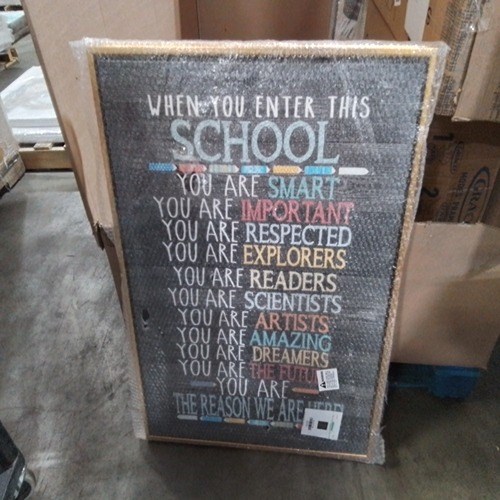 WHEN YOU ENTER THIS
SCHOOL
YOU ARE SMART
YOU ARE IMPORTANT
YOU ARE RESPECTED
YOU ARE EXPLORERS
YOU ARE READERS
YOU ARE SCIENTISTS
YOU ARE ARTISTS
YOU ARE AMAZING
YOU ARE DREAMERS
YOU ARE THE FUTU
YOU ARE
THE REASON WE ARE HERE